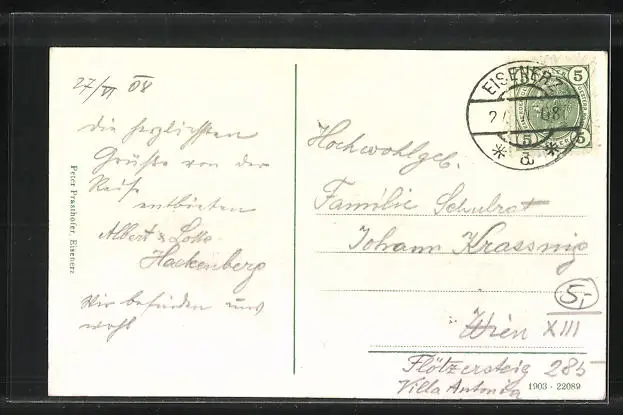 27/VI 08
die herzlichsten
Grüße von der
Reise
entbieten
Albert & Lotte
Hackenberg
Wir befinden uns
wohl
Peter Prasthofer, Eisenerz
EISENERZ
5
5
5
a
Hochwohlgeb.
Familie Schulrat
Johann Krassnig
5,-
Wien XIII
Flötzersteig 285
Villa Antonia
1903 - 22089